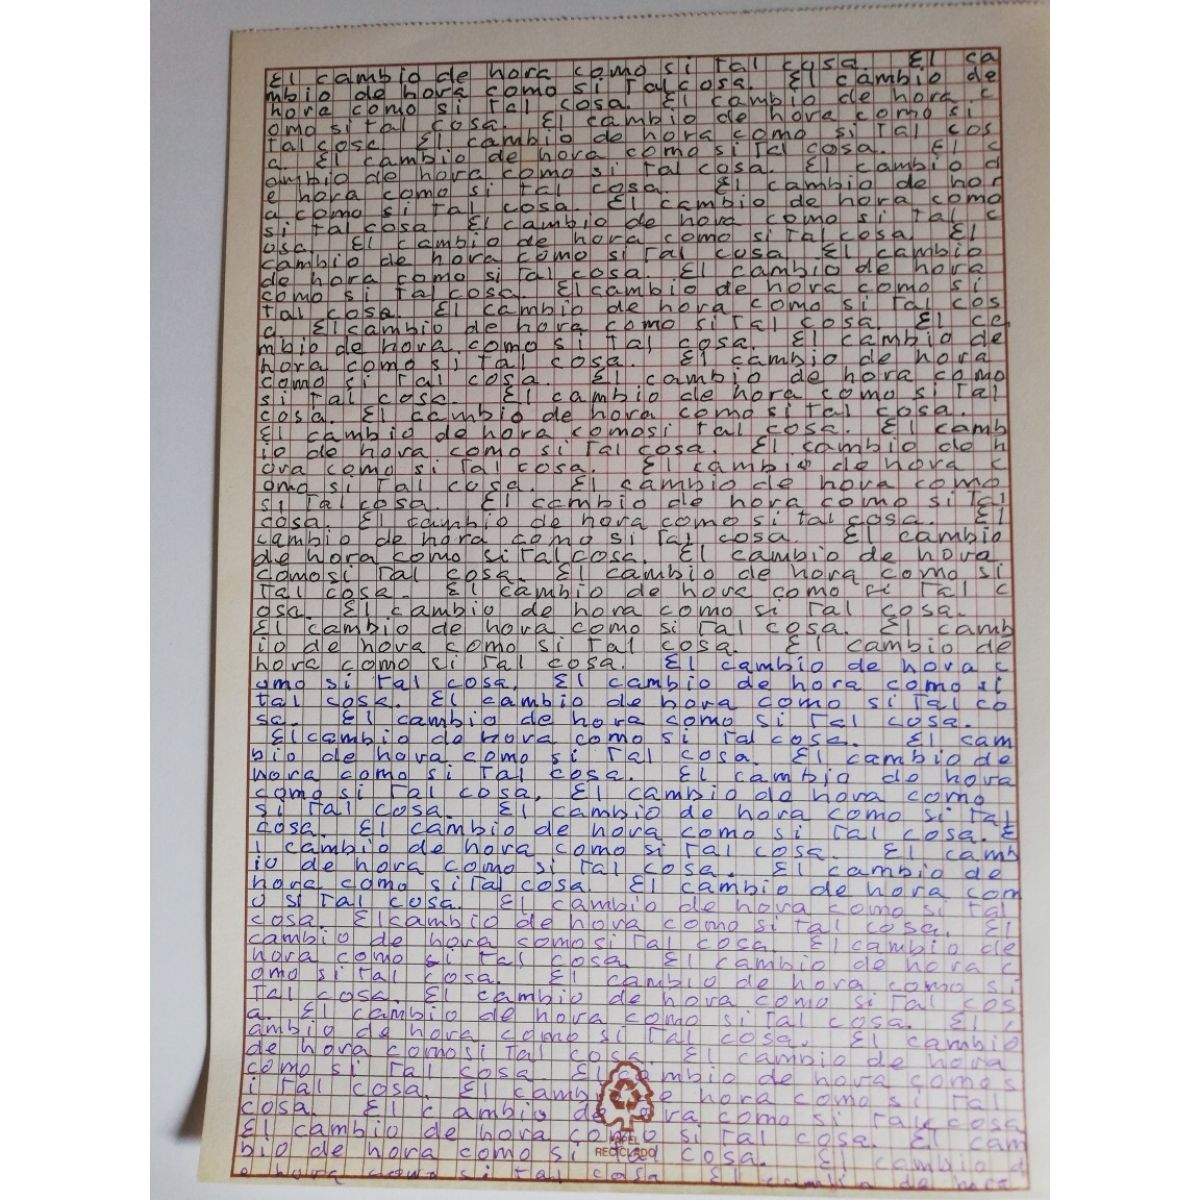 El cambio de hora como si tal cosa. El ca
mbio de hora como si tal cosa. El cambio de
hora como si tal cosa. El cambio de hora c
omo si tal cosa. El cambio de hora como si
tal cosa El cambio de hora como si tal cos
a. El cambio de hora como si tal cosa. El c
ambio de hora como si tal cosa. El cambio d
e hora como si tal cosa. El cambio de hor
a como si tal cosa. El cambio de hora como
si tal cosa El cambio de hora como si tal c
osa. El cambio de hora como si tal cosa El
cambio de hora como si tal cosa. El cambio
de hora como si tal cosa. El cambio de hora
como si tal cosa. El cambio de hora como si
tal cosa. El cambio de hora como si tal cos
a El cambio de hora como si tal cosa. El ca
mbio de hora como si tal cosa. El cambio de
hora como si tal cosa. El cambio de hora
como si tal cosa. El cambio de hora como
si tal cosa. El cambio de hora como si tal
cosa. El cambio de hora como si tal cosa.
El cambio de hora como si tal cosa. El camb
io de hora como si tal cosa. El cambio de h
ora como si tal cosa. El cambio de hora c
omo si tal cosa. El cambio de hora como
si tal cosa. El cambio de hora como si tal
cosa. El cambio de hora como si tal cosa. El
cambio de hora como si tal cosa. El cambio
de hora como si tal cosa. El cambio de hora
como si tal cosa. El cambio de hora como si
tal cosa. El cambio de hora como si tal c
osa. El cambio de hora como si tal cosa.
El cambio de hora como si tal cosa. El camb
io de hora como si tal cosa. El cambio de
hora como si tal cosa. El cambio de hora c
omo si tal cosa. El cambio de hora como si
tal cosa. El cambio de hora como si tal co
sa. El cambio de hora como si tal cosa.
El cambio de hora como si tal cosa. El cam
bio de hora como si tal cosa. El cambio de
hora como si tal cosa. El cambio de hora
como si tal cosa. El cambio de hora como
si tal cosa. El cambio de hora como si tal
cosa. El cambio de hora como si tal cosa. E
l cambio de hora como si tal cosa. El camb
io de hora como si tal cosa. El cambio de
hora como si tal cosa El cambio de hora com
o si tal cosa. El cambio de hora como si tal
cosa. El cambio de hora como si tal cosa. El
cambio de hora como si tal cosa El cambio de
hora como si tal cosa El cambio de hora c
omo si tal cosa. El cambio de hora como si
tal cosa. El cambio de hora como si tal cos
a. El cambio de hora como si tal cosa. El c
ambio de hora como si tal cosa. El cambio
de hora como si tal cosa. El cambio de hora
como si tal cosa El cambio de hora como s
i tal cosa. El camb e hora como si tal
cosa. El cambio de ora como si tal cosa
El cambio de hora como si tal cosa. El cam
bio de hora como si tal cosa. El cambio d
e hora como si tal cosa El cambio de hora
PAPEL
RECICLADO